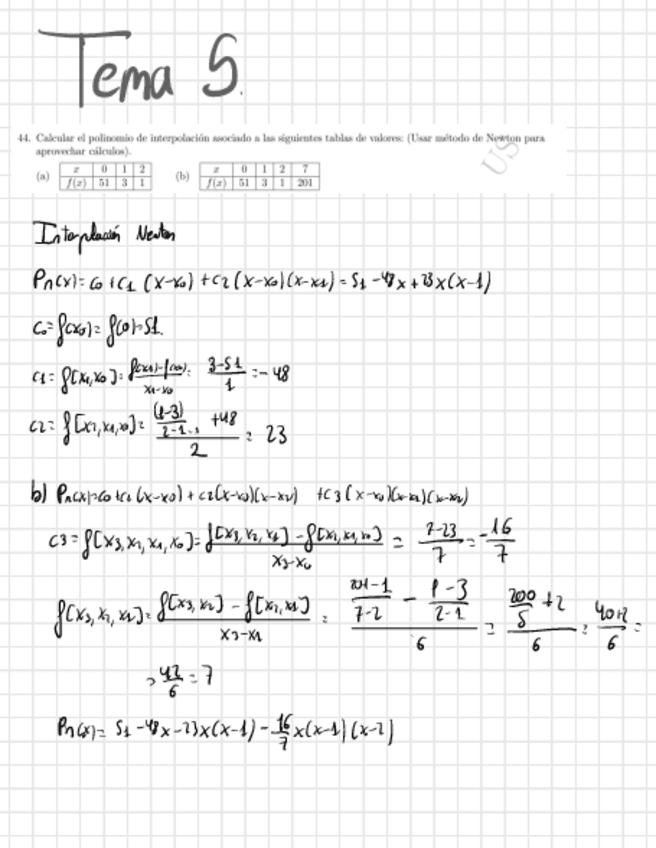 Tema 5.
44. Calcular el polinomio de interpolación asociado a las siguientes tablas de valores: (Usar método de Newton para
aprovechar cálculos).
(a) x 0 1 2 (b) x 0 1 2 7
f(x) 51 3 1 f(x) 51 3 1 201
US
Interpolación Newton
Pn(x) = c0 + c1 (x-x0) + c2 (x-x0)(x-x1) = 51 - 48x + 23x(x-1)
c0 = f(x0) = f(0) = 51.
c1 = f[x1,x0] = (f(x1)-f(x0))/(x1-x0) = (3-51)/1 = -48
c2 = f[x2,x1,x0] = ((1-3)/(2-1) + 48)/2 = 23
b) Pn(x) = c0 + c1 (x-x0) + c2(x-x0)(x-x1) + c3 (x-x0)(x-x1)(x-x2)
c3 = f[x3,x2,x1,x0] = (f[x3,x2,x1] - f[x2,x1,x0])/(x3-x0) = (7-23)/7 = -16/7
f[x3,x2,x1] = (f[x3,x2] - f[x2,x1])/(x3-x1) = ((201-1)/(7-2) - (1-3)/(2-1))/6 = (200/5 + 2)/6 = (40+2)/6 =
= 42/6 = 7
Pn(x) = 51 - 48x - 23x(x-1) - 16/7 x(x-1)(x-2)